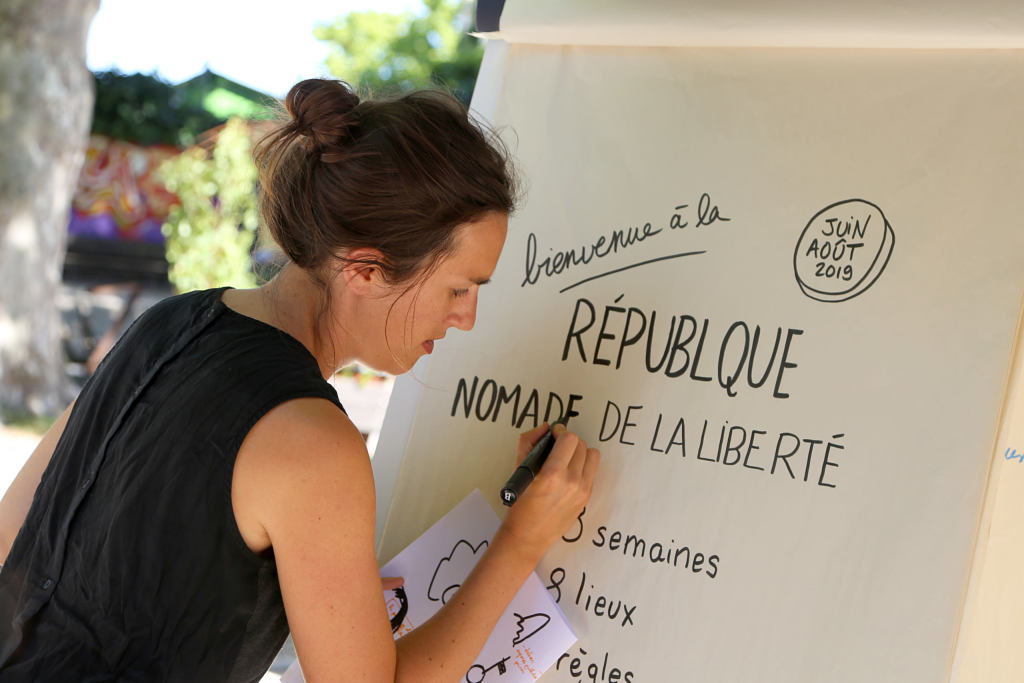 bienvenue à la
JUIN
AOÛT
2019
RÉPUBLQUE
NOMADE DE LA LIBERTÉ
3 semaines
8 lieux
règles